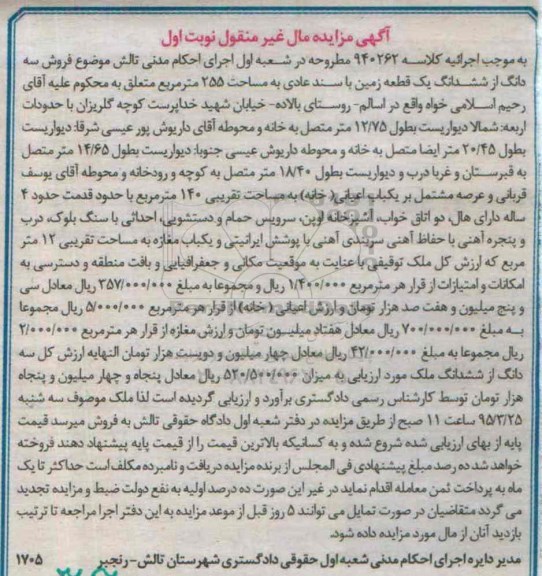 آگهی مزایده مال غیر منقول نوبت اول
به موجب اجرائیه کلاسه ۹۴۰۲۶۲ مطروحه در شعبه اول اجرای احکام مدنی تالش موضوع فروش سه
دانگ از ششدانگ یک قطعه زمین با سند عادی به مساحت ۲۵۵ مترمربع متعلق به محکوم علیه آقای
رحیم اسلامی خواه واقع در اسالم- روستای بالاده- خیابان شهید خداپرست کوچه گلریزان با حدودات
اربعه: شمالا دیواریست بطول ۱۲/۷۵ متر متصل به خانه و محوطه آقای داریوش پور عیسی شرقا: دیواریست
بطول ۲۰/۴۵ متر ایضا متصل به خانه و محوطه داریوش عیسی جنوبا: دیواریست بطول ۱۴/۶۵ متر متصل
به قبرستان و غربا درب و دیواریست بطول ۱۸/۴۰ متر متصل به کوچه و رودخانه و محوطه آقای یوسف
قربانی و عرصه مشتمل بر یکباب اعیانی( خانه) به مساحت تقریبی ۱۴۰ مترمربع با حدود قدمت حدود ۴
ساله دارای هال، دو اتاق خواب، آشپزخانه اوپن، سرویس حمام و دستشویی، احداثی با سنگ بلوک، درب
و پنجره آهنی با حفاظ آهنی سربندی آهنی با پوشش ایرانیتی و یکباب مغازه به مساحت تقریبی ۱۲ متر
مربع که ارزش کل ملک توقیفی با عنایت به موقعیت مکانی و جعرافیایی و بافت منطقه و دسترسی به
امکانات و امتیازات از قرار هر مترمربع ۱/۴۰۰/۰۰۰ ریال و مجموعا به مبلغ ۳۵۷/۰۰۰/۰۰۰ ریال معادل سی
و پنج میلیون و هفت صد هزار تومان و ارزش اعیانی ( خانه) از قرار هر مترمربع ۵/۰۰۰/۰۰۰ ریال مجموعا
به مبلغ ۷۰۰/۰۰۰/۰۰۰ ریال معادل هفتاد میلیون تومان و ارزش مغازه از قرار هر مترمربع ۲/۰۰۰/۰۰۰
ریال مجموعا به مبلغ ۴۲/۰۰۰/۰۰۰ ریال معادل چهار میلیون و دویست هزار تومان النهایه ارزش کل سه
دانگ از ششدانگ ملک مورد ارزیابی به میزان ۵۲۰/۵۰۰/۰۰۰ ریال معادل پنجاه و چهار میلیون و پنجاه
هزار تومان توسط کارشناس رسمی دادگستری برآورد و ارزیابی گردیده است لذا ملک موصوف سه شنبه
۹۵/۳/۲۵ ساعت ۱۱ صبح از طریق مزایده در دفتر شعبه اول دادگاه حقوقی تالش به فروش میرسد قیمت
پایه از بهای ارزیابی شده شروع شده و به کسانیکه بالاترین قیمت را از قیمت پایه پیشنهاد دهند فروخته
خواهد شد ده رصد مبلغ پیشنهادی فی المجلس از برنده مزایده دریافت و نامبرده مکلف است حداکثر تا یک
ماه به پرداخت ثمن معامله اقدام نماید در غیر این صورت ده درصد اولیه به نفع دولت ضبط و مزایده تجدید
می گردد متقاضیان در صورت تمایل می توانند ۵ روز قبل از موعد مزایده به این دفتر اجرا مراجعه تا ترتیب
بازدید آنان از مال مورد مزایده داده شود.
مدیر دایره اجرای احکام مدنی شعبه اول حقوقی دادگستری شهرستان تالش- رنجبر ۱۷۰۵